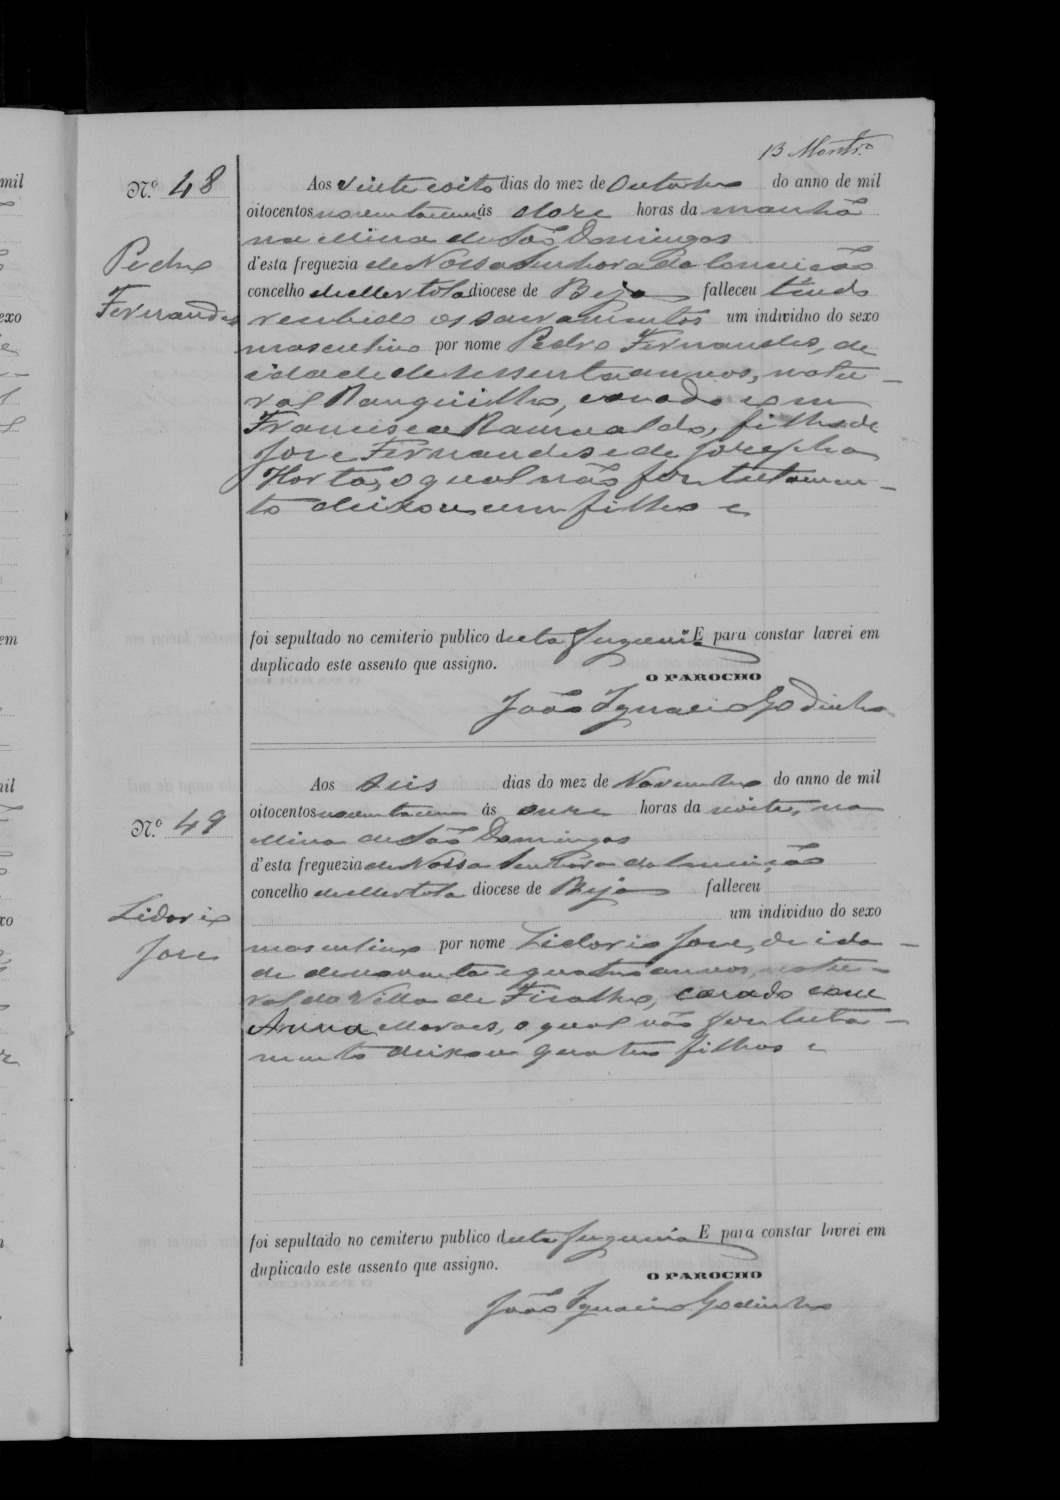 13
N.º 48
Pedro
Fernandes
Aos vinte e oito dias do mez de Outubro do anno de mil
oitocentos noventa e um ás doze horas da manhã
na Mina de São Domingos
d'esta freguezia de Nossa Senhora da Conceição
concelho de Mertola diocese de Beja falleceu tendo
recebido os sacramentos um individuo do sexo
masculino por nome Pedro Fernandes, de
idade de sessenta annos, natu-
ral casado com
Francisca Ramualda, filho de
José Fernandes e de Josepha
Horta, o qual não fez testamen-
to deixou um filho e
foi sepultado no cemiterio publico desta freguezia E para constar lavrei em
duplicado este assento que assigno.
O PAROCHO
João Ignacio Godinho
N.º 49
Lidorio
José
Aos seis dias do mez de Novembro do anno de mil
oitocentos noventa e um ás onze horas da noite, na
Mina de São Domingos
d'esta freguezia de Nossa Senhora da Conceição
concelho de Mertola diocese de Beja falleceu
um individuo do sexo
masculino por nome Lidorio José, de ida-
de de noventa e quatro annos, natu-
ral da Villa de Ficalho, casado com
Anna Moraes, o qual não fez testa-
mento deixou quatro filhos e
foi sepultado no cemiterio publico desta freguezia E para constar lavrei em
duplicado este assento que assigno.
O PAROCHO
João Ignacio Godinho
mil
exo
em